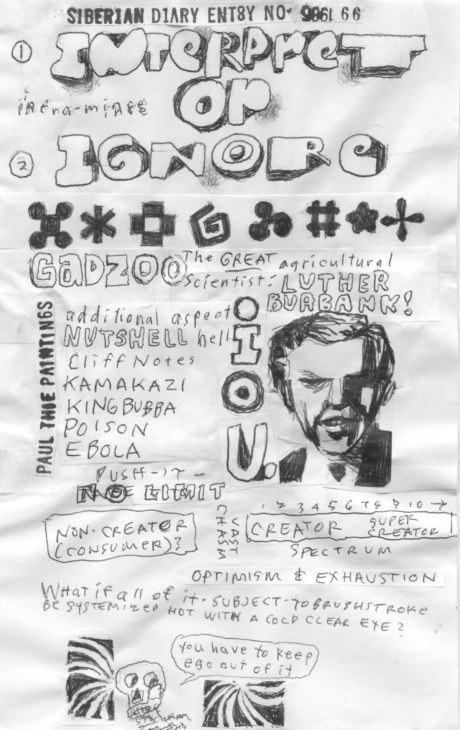 SIBERIAN DIARY ENT8Y NO. 9861 66
① INTERPRET
OR
② IGNORE
GADZOO
The GREAT agricultural
Scientist:
LUTHER
BURBANK!
PAUL THOE PAINTINGS
additional aspect
NUTSHELL hell
Cliff Notes
KAMAKAZI
KING BUBBA
POISON
EBOLA
I.O.U.
PUSH-IT-
NO LIMIT
NON-CREATOR
(CONSUMER)?
VAST
CHASM
1 2 3 4 5 6 7 8 9 10
CREATOR SUPER CREATOR
SPECTRUM
OPTIMISM & EXHAUSTION
What if all of it-SUBJECT-TO BRUSHSTROKE
BE SYSTEMIZED HOT WITH A COLD CLEAR EYE?
you have to keep
ego out of it